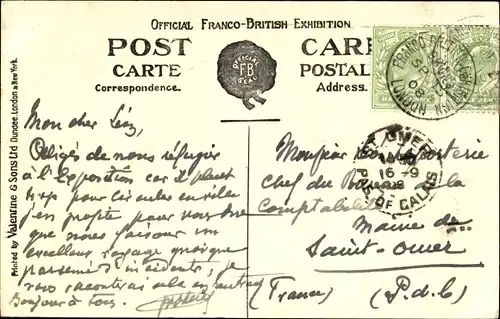 OFFICIAL FRANCO-BRITISH EXHIBITION
POST CARTE
Correspondence.
OFFICIAL
F B
SEAL
CARTE POSTALE
Address.
FRANCO-BRITISH
LONDON
Printed by Valentine & Sons Ltd Dundee, London & New York.
Mon cher
Obligés de nous réfugier
à l'Exposition car il pleut
trop pour circuler en ville
j'en profite pour vous dire
que nous faisons un
excellent voyage quoique
parsemé d'incidents; je
vous raconterai cela en
Bonjour à tous.
ST OMER
16-9
08
PAS DE CALAIS
Monsieur
Chef du Bureau de la
Comptabilité
Mairie de
Saint-Omer
(France) (P.d.C)